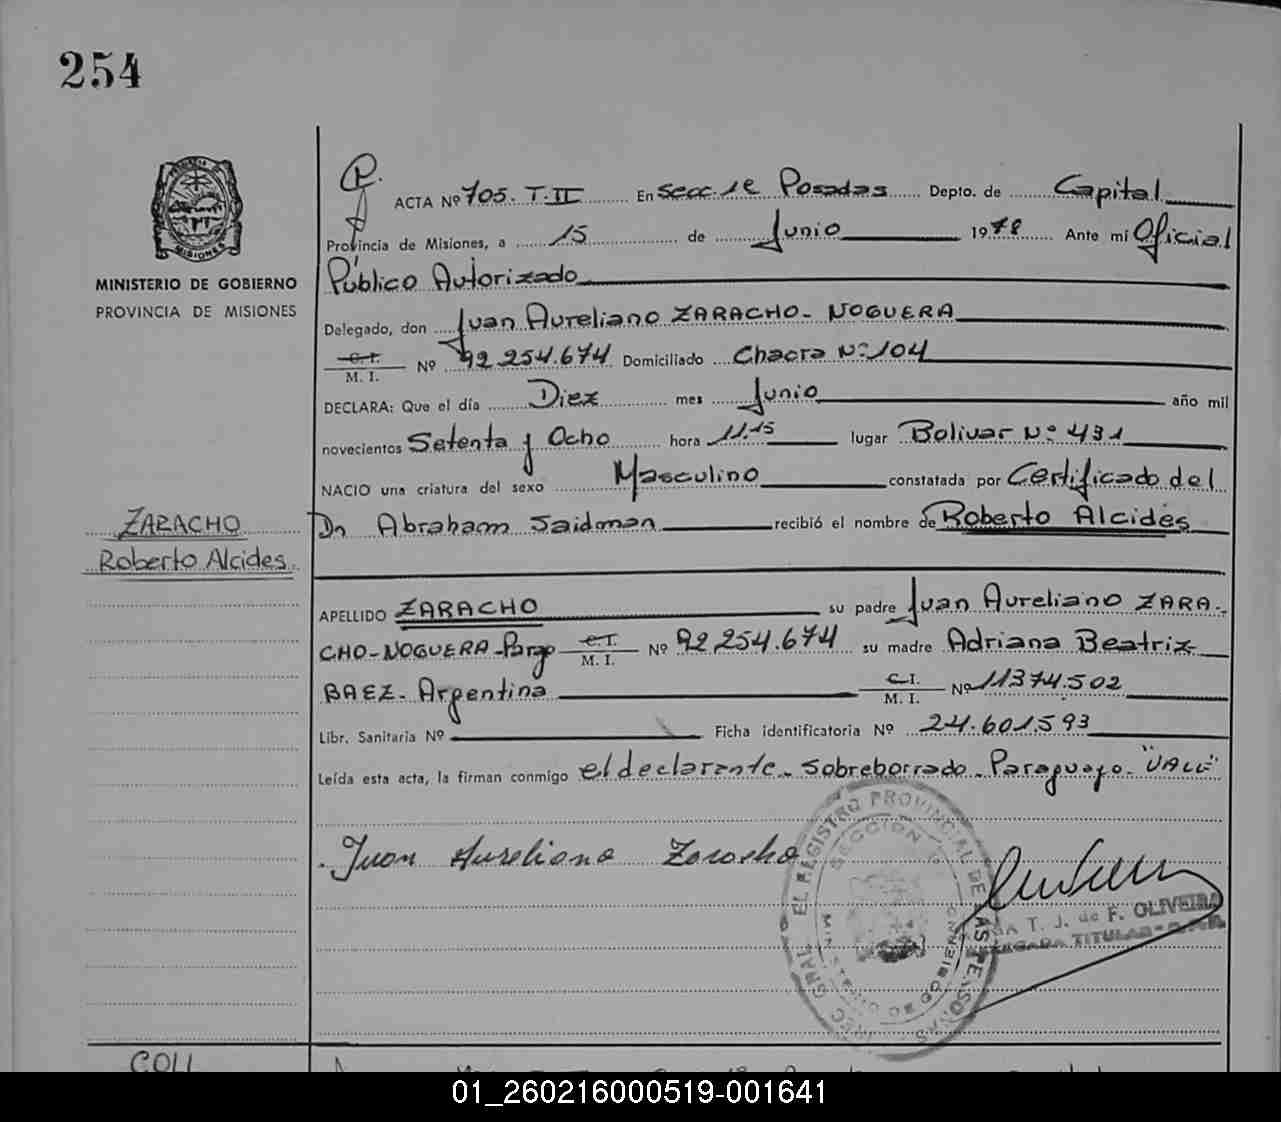 254
MINISTERIO DE GOBIERNO
PROVINCIA DE MISIONES
ACTA Nº 705. T. II En secc. 1e Posadas Depto. de Capital
Provincia de Misiones, a 15 de Junio 1978 Ante mí Oficial
Público Autorizado
Delegado, don Juan Aureliano ZARACHO- NOGUERA
C. I.
M. I. Nº 92 254.674 Domiciliado Chacra Nº 104
DECLARA: Que el día Diez mes Junio año mil
novecientos Setenta y Ocho hora 11.15 lugar Bolivar Nº 431
NACIO una criatura del sexo Masculino constatada por Certificado del
Dr Abraham Saidman recibió el nombre de Roberto Alcides
ZARACHO
Roberto Alcides
APELLIDO ZARACHO su padre Juan Aureliano ZARA-
CHO-NOGUERA-Pargo C.I.
M. I. Nº 92,254.674 su madre Adriana Beatriz
BAEZ- Argentina C.I.
M. I. Nº 11374.502
Libr. Sanitaria Nº Ficha identificatoria Nº 24.601.593
Leída esta acta, la firman conmigo el declarante- sobreborrado- Paraguayo- "VALE"
Juan Aureliano Zaracho
T. J. de F. OLIVEIRA
TITULAR
REGISTRO PROVINCIAL DE LAS PERSONAS
SECCION
MINISTERIO DE GOBIERNO
01_260216000519-001641